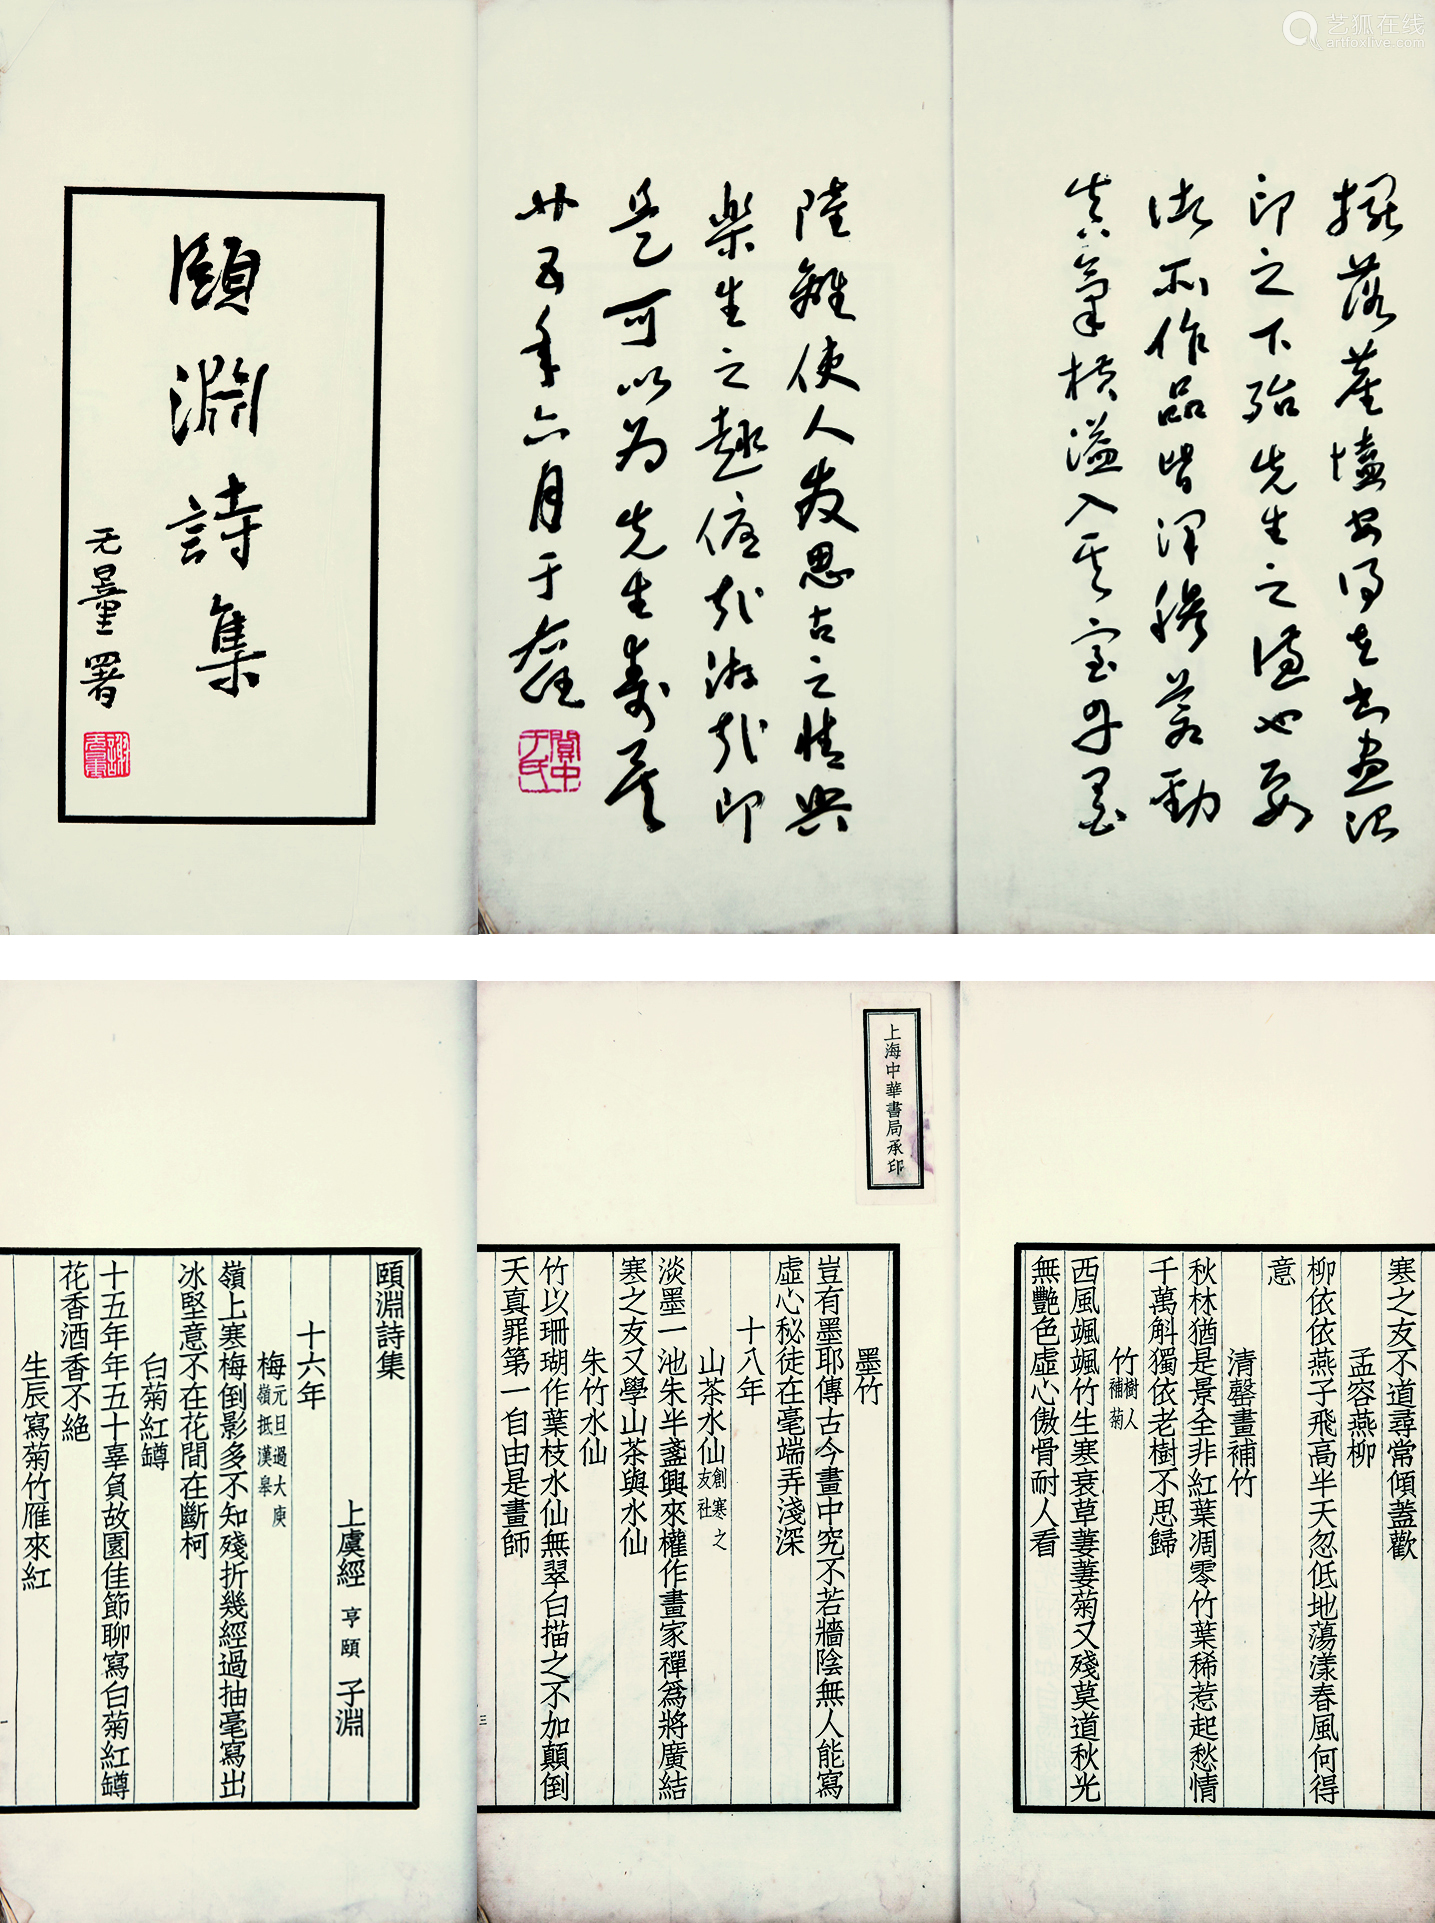 艺狐在线
artfoxlive.com
頤淵詩集
无量署
陸離使人發思古之情與
樂生之趣
是可以為先生壽矣
廿五年六月于右任
關中于氏
印之下殆先生之謙也要
所作品皆渾穆蒼勁
真氣橫溢入其室
頤淵詩集
上虞經亨頤子淵
十六年
梅元旦過大庾嶺抵漢皋
嶺上寒梅倒影多不知殘折幾經過抽毫寫出
冰堅意不在花間在斷柯
白菊紅罇
十五年年五十辜負故園佳節聊寫白菊紅罇
花香酒香不絕
生辰寫菊竹雁來紅
一
上海中華書局承印
墨竹
豈有墨耶傳古今畫中究不若牆陰無人能寫
虛心秘徒在毫端弄淺深
十八年
山茶水仙創寒之友社
淡墨一池朱半盞興來權作畫家禪為將廣結
寒之友又學山茶與水仙
朱竹水仙
竹以珊瑚作葉枝水仙無翠白描之不加顛倒
天真罪第一自由是畫師
三
寒之友不道尋常傾蓋歡
孟容燕柳
柳依依燕子飛高半天忽低地蕩漾春風何得
意
清磬畫補竹
秋林猶是景全非紅葉凋零竹葉稀惹起愁情
千萬斛獨依老樹不思歸
竹樹人補菊
西風颯颯竹生寒衰草萋萋菊又殘莫道秋光
無艷色虛心傲骨耐人看